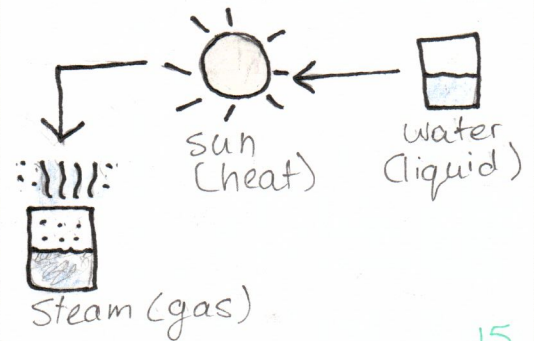 sun
(heat)
water
(liquid)
Steam (gas)
15